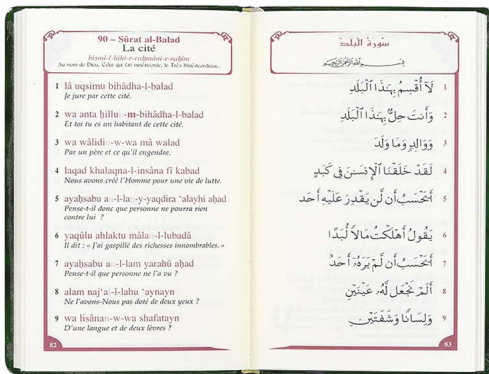 90 – Sūrat al-Balad
La cité
bismi-l-lāhi-r-raḥmāni-r-raḥīm
Au nom de Dieu, Celui qui fait miséricorde, le Très Miséricordieux.
1 lā uqsimu bihādha-l-balad
Je jure par cette cité.
2 wa anta ḥillu-n-m-bihādha-l-balad
Et toi tu es un habitant de cette cité.
3 wa wālidi-n-w-wa mā walad
Par un père et ce qu'il engendre.
4 laqad khalaqna-l-insāna fī kabad
Nous avons créé l'Homme pour une vie de lutte.
5 ayaḥsabu a-n-l-la-n-y-yaqdira 'alayhi aḥad
Pense-t-il donc que personne ne pourra rien
contre lui ?
6 yaqūlu ahlaktu māla-n-l-lubadā
Il dit : « J'ai gaspillé des richesses innombrables. »
7 ayaḥsabu a-n-l-lam yarahū aḥad
Pense-t-il que personne ne l'a vu ?
8 alam naj'a-l-lahu 'aynayn
Ne l'avons-Nous pas doté de deux yeux ?
9 wa lisāna-n-w-wa shafatayn
D'une langue et de deux lèvres ?
82
سورة البلد
بِسْمِ اللَّهِ الرَّحْمَٰنِ الرَّحِيمِ
1 لَآ أُقْسِمُ بِهَٰذَا الْبَلَدِ
2 وَأَنتَ حِلٌّ بِهَٰذَا الْبَلَدِ
3 وَوَالِدٍ وَمَا وَلَدَ
4 لَقَدْ خَلَقْنَا الْإِنسَٰنَ فِي كَبَدٍ
5 أَيَحْسَبُ أَن لَّن يَقْدِرَ عَلَيْهِ أَحَدٌ
6 يَقُولُ أَهْلَكْتُ مَالًا لُّبَدًا
7 أَيَحْسَبُ أَن لَّمْ يَرَهُۥ أَحَدٌ
8 أَلَمْ نَجْعَل لَّهُۥ عَيْنَيْنِ
9 وَلِسَانًا وَشَفَتَيْنِ
83